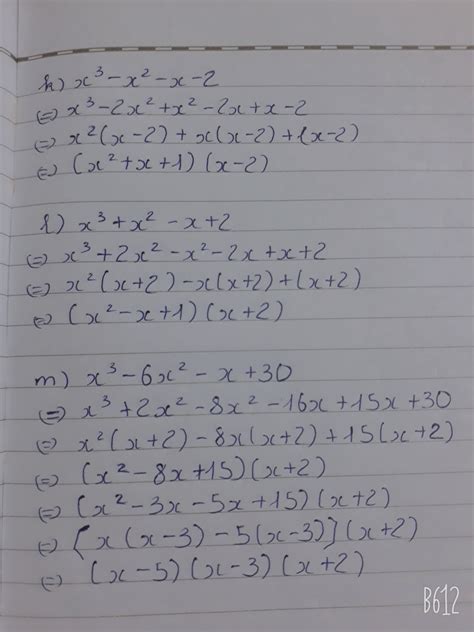 h) x³ - x² - x - 2
⇔ x³ - 2x² + x² - 2x + x - 2
⇔ x²(x - 2) + x(x - 2) + (x - 2)
⇔ (x² + x + 1)(x - 2)
l) x³ + x² - x + 2
⇔ x³ + 2x² - x² - 2x + x + 2
⇔ x²(x + 2) - x(x + 2) + (x + 2)
⇔ (x² - x + 1)(x + 2)
m) x³ - 6x² - x + 30
⇔ x³ + 2x² - 8x² - 16x + 15x + 30
⇔ x²(x + 2) - 8x(x + 2) + 15(x + 2)
⇔ (x² - 8x + 15)(x + 2)
⇔ (x² - 3x - 5x + 15)(x + 2)
⇔ [x(x - 3) - 5(x - 3)](x + 2)
⇔ (x - 5)(x - 3)(x + 2)
B612